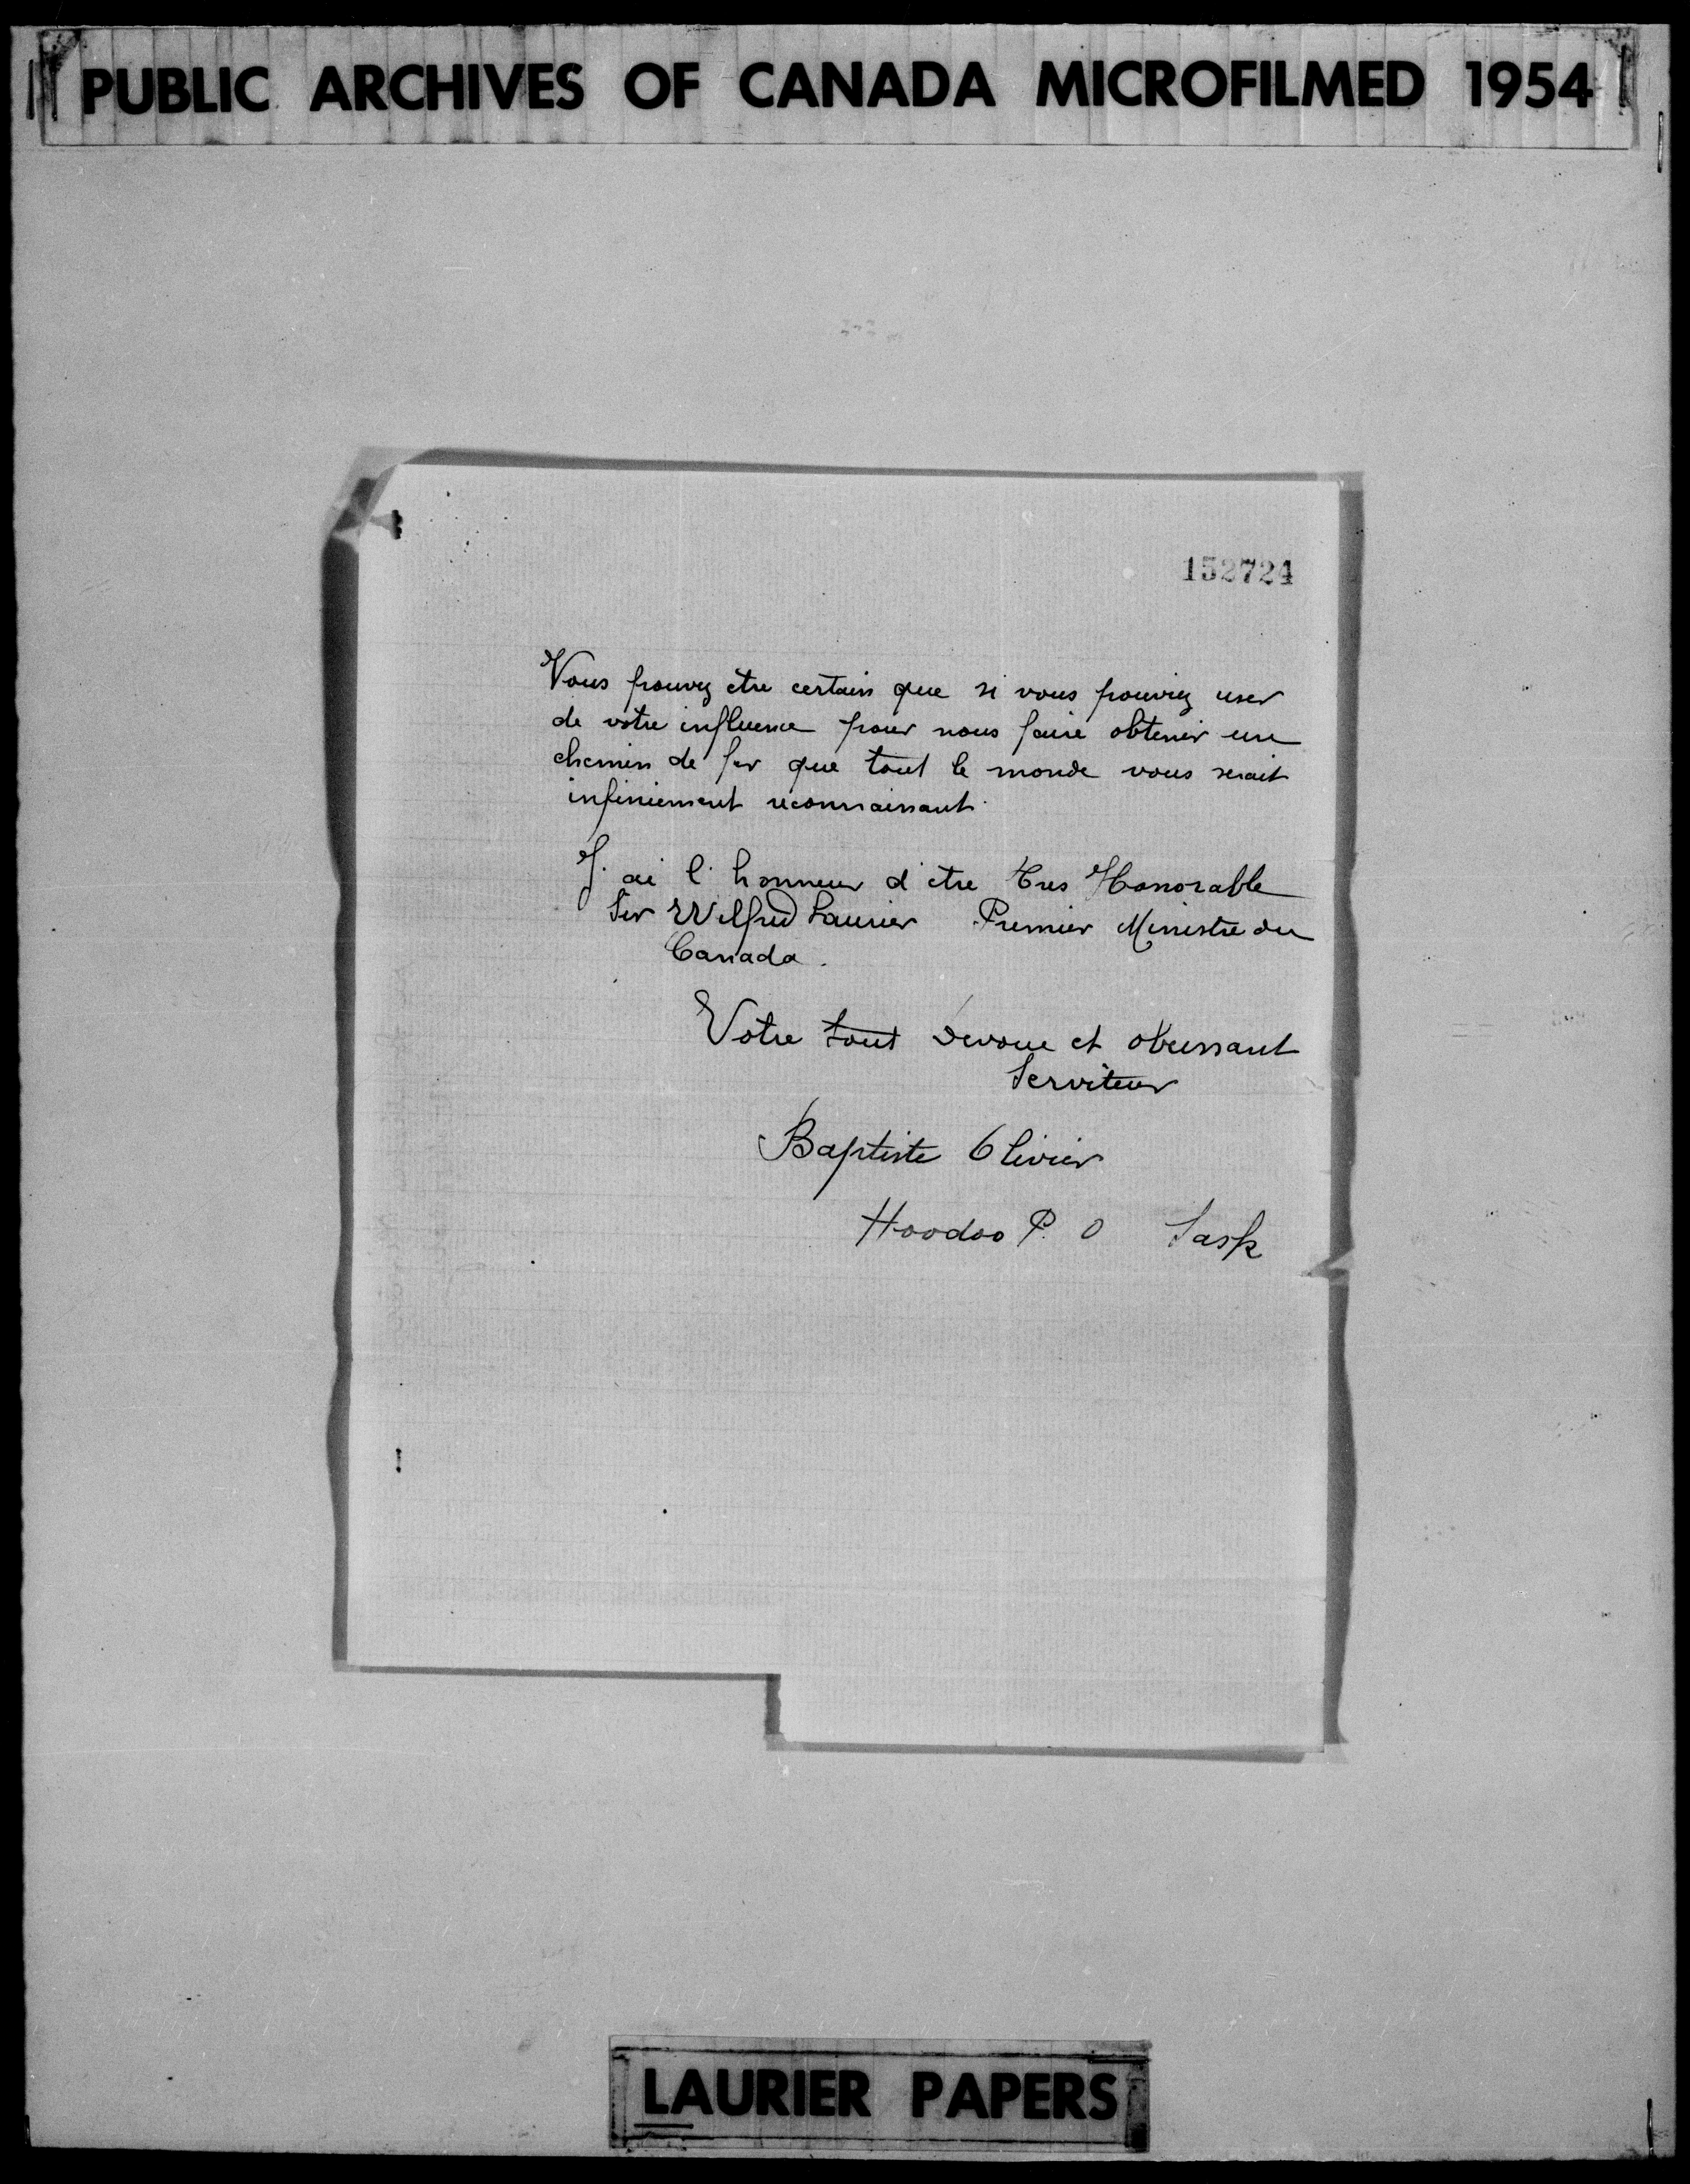 PUBLIC ARCHIVES OF CANADA MICROFILMED 1954
152724
Vous pouvez être certain que si vous pouviez user
de votre influence pour nous faire obtenir une
chemin de fer que tout le monde vous serait
infiniement reconnaissant.
J. ai l. honneur d'etre Tres Honorable
Sir Wilfrid Laurier Premier Ministre du
Canada.
Votre tout devoue et obeissant
Serviteur
Baptiste Olivier
Hoodoo P. O Sask
LAURIER PAPERS